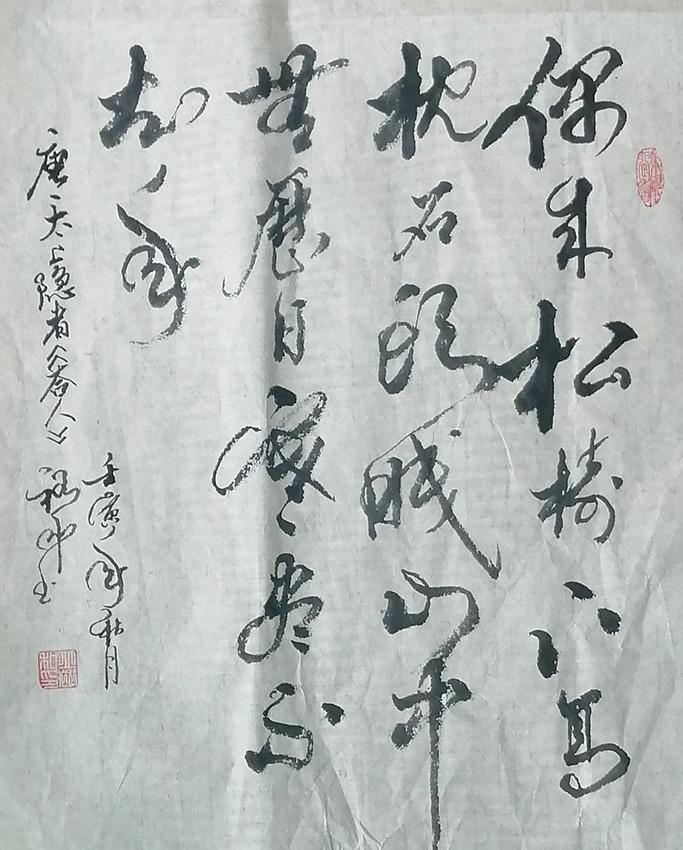 偶来松樹下高
枕石頭眠山中
無曆日寒尽不
知年
唐太上隐者《答人》
壬寅年秋月
书